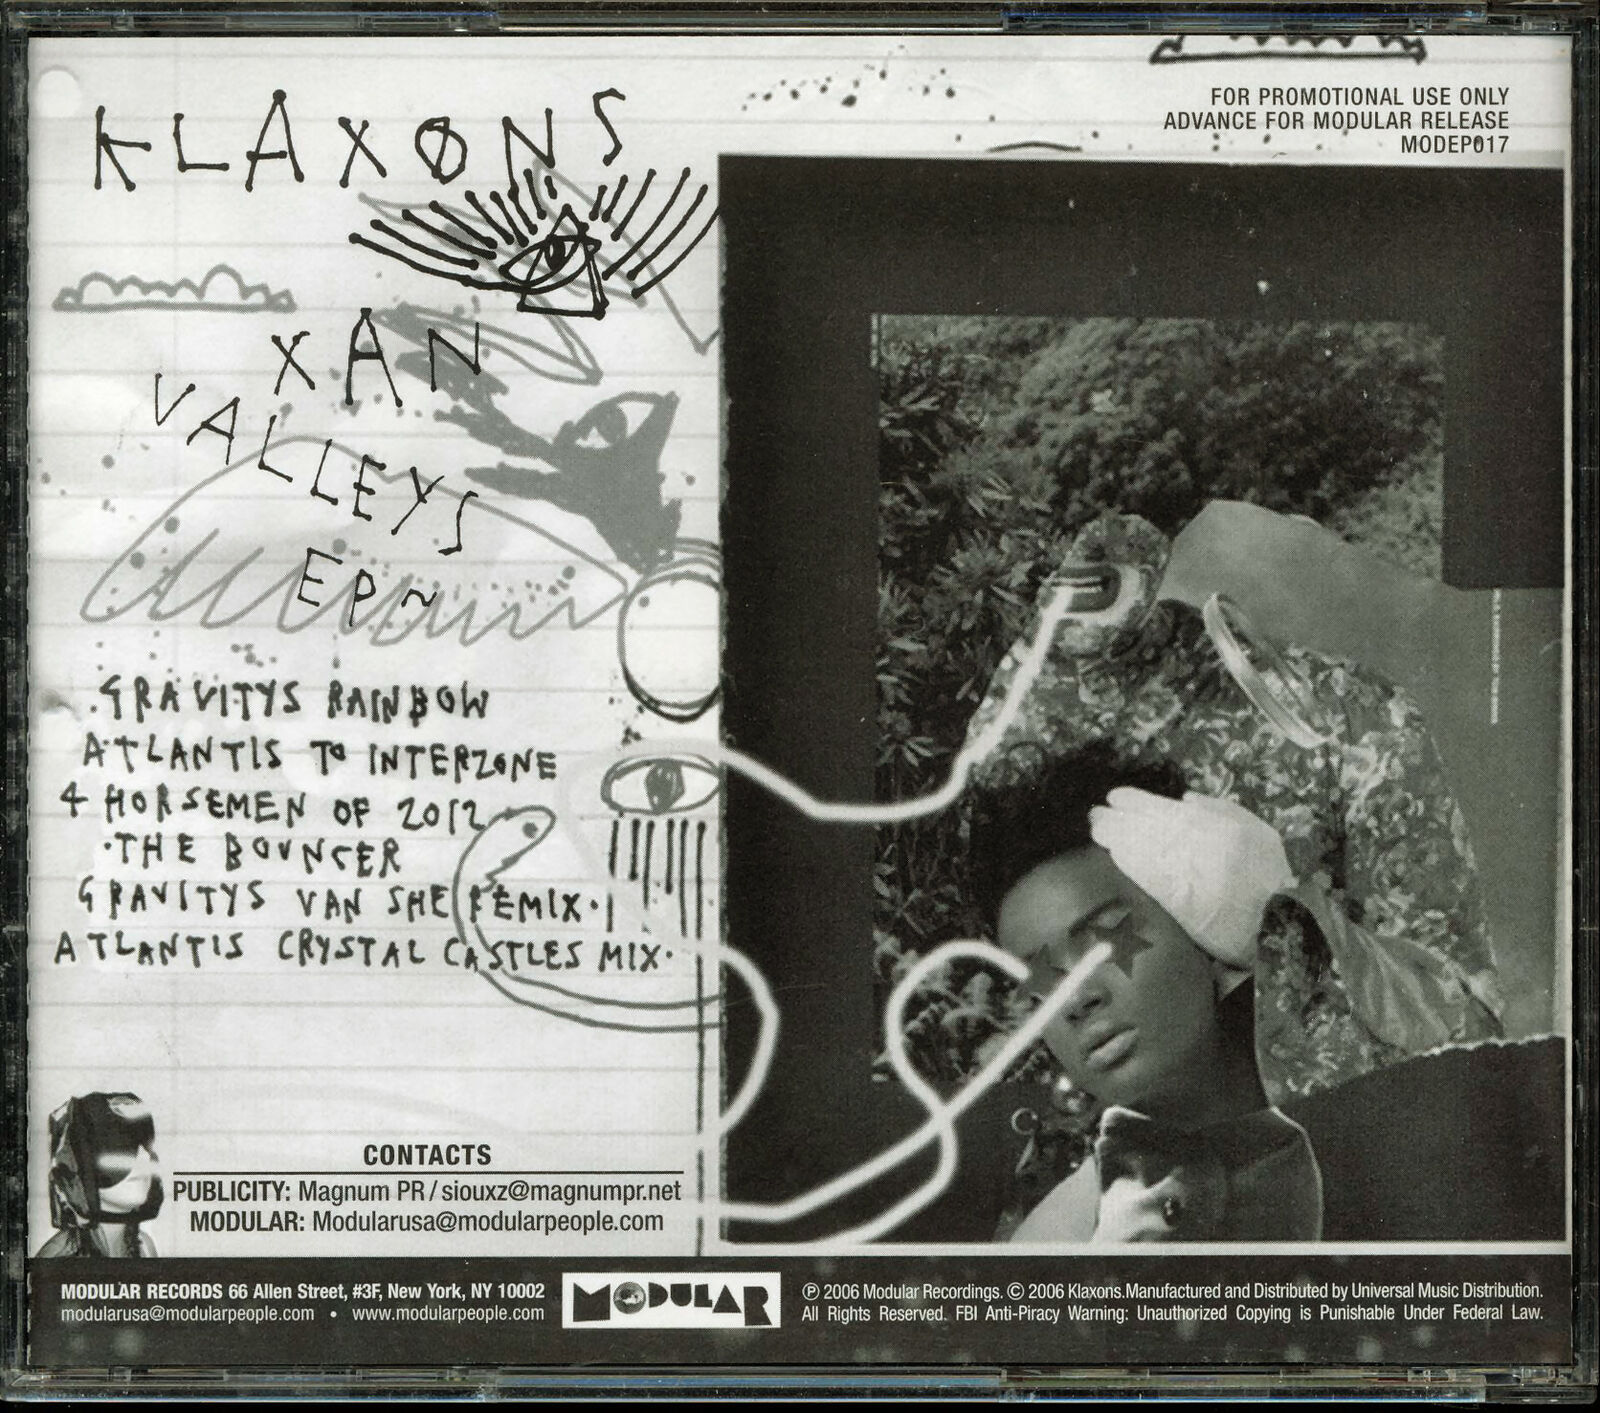 KLAXONS
XAN
VALLEYS
EP~
FOR PROMOTIONAL USE ONLY
ADVANCE FOR MODULAR RELEASE
MODEP017
·GRAVITYS RAINBOW
ATLANTIS TO INTERZONE
4 HORSEMEN OF 2012
·THE BOUNCER
GRAVITYS VAN SHE REMIX·
ATLANTIS CRYSTAL CASTLES MIX·
CONTACTS
PUBLICITY: Magnum PR / siouxz@magnumpr.net
MODULAR: Modularusa@modularpeople.com
MODULAR RECORDS 66 Allen Street, #3F, New York, NY 10002
modularusa@modularpeople.com • www.modularpeople.com
MODULAR
℗ 2006 Modular Recordings. © 2006 Klaxons.Manufactured and Distributed by Universal Music Distribution.
All Rights Reserved. FBI Anti-Piracy Warning: Unauthorized Copying is Punishable Under Federal Law.